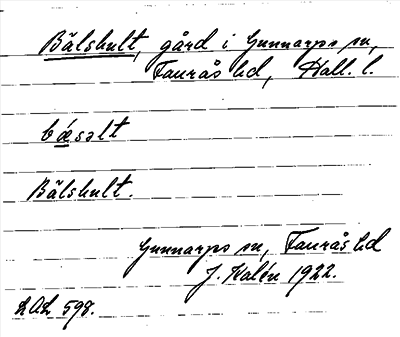 Bälshult, gård i Gunnarps sn,
Faurås hd, Hall. l.
bǽsəlt
Bälshult.
Gunnarps sn, Faurås hd
J. Kalén 1922.
LAL 598.